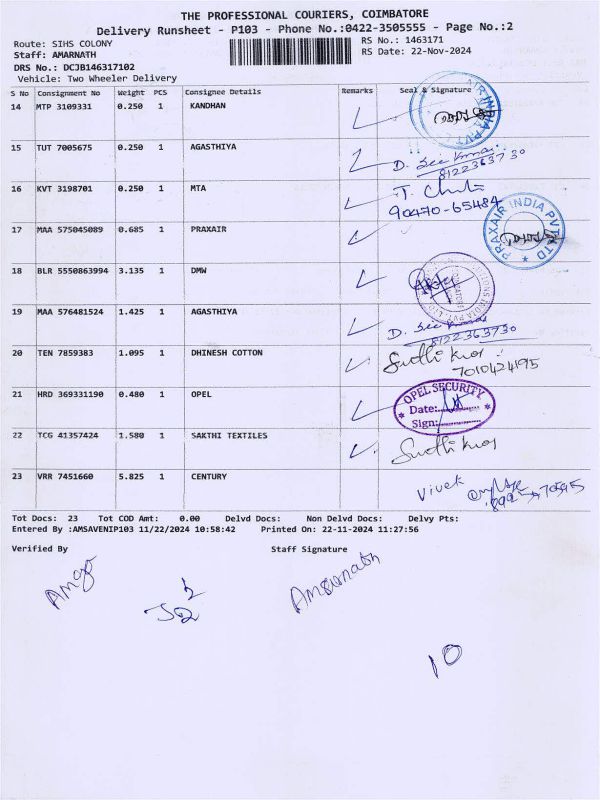 THE PROFESSIONAL COURIERS, COIMBATORE
Delivery Runsheet - P103 - Phone No.:0422-3505555 - Page No.:2
Route: SIHS COLONY
RS No.: 1463171
Staff: AMARNATH
RS Date: 22-Nov-2024
DRS No.: DCJB146317102
Vehicle: Two Wheeler Delivery
S No Consignment No Weight PCS Consignee Details Remarks Seal & Signature
14 MTP 3109331 0.250 1 KANDHAN
15 TUT 7005675 0.250 1 AGASTHIYA
8122363730
16 KVT 3198701 0.250 1 MTA
90470-65484
17 MAA 575045089 0.685 1 PRAXAIR PRAXAIR INDIA PVT LTD
18 BLR 5550863994 3.135 1 DMW
19 MAA 576481524 1.425 1 AGASTHIYA
8122363730
20 TEN 7859383 1.095 1 DHINESH COTTON
7010424195
21 HRD 369331190 0.480 1 OPEL OPEL SECURITY
Date:
Sign:
22 TCG 41357424 1.580 1 SAKTHI TEXTILES
23 VRR 7451660 5.825 1 CENTURY Vivek
Tot Docs: 23 Tot COD Amt: 0.00 Delvd Docs: Non Delvd Docs: Delvy Pts:
Entered By :AMSAVENIP103 11/22/2024 10:58:42 Printed On: 22-11-2024 11:27:56
Verified By Staff Signature
Amarnath
10